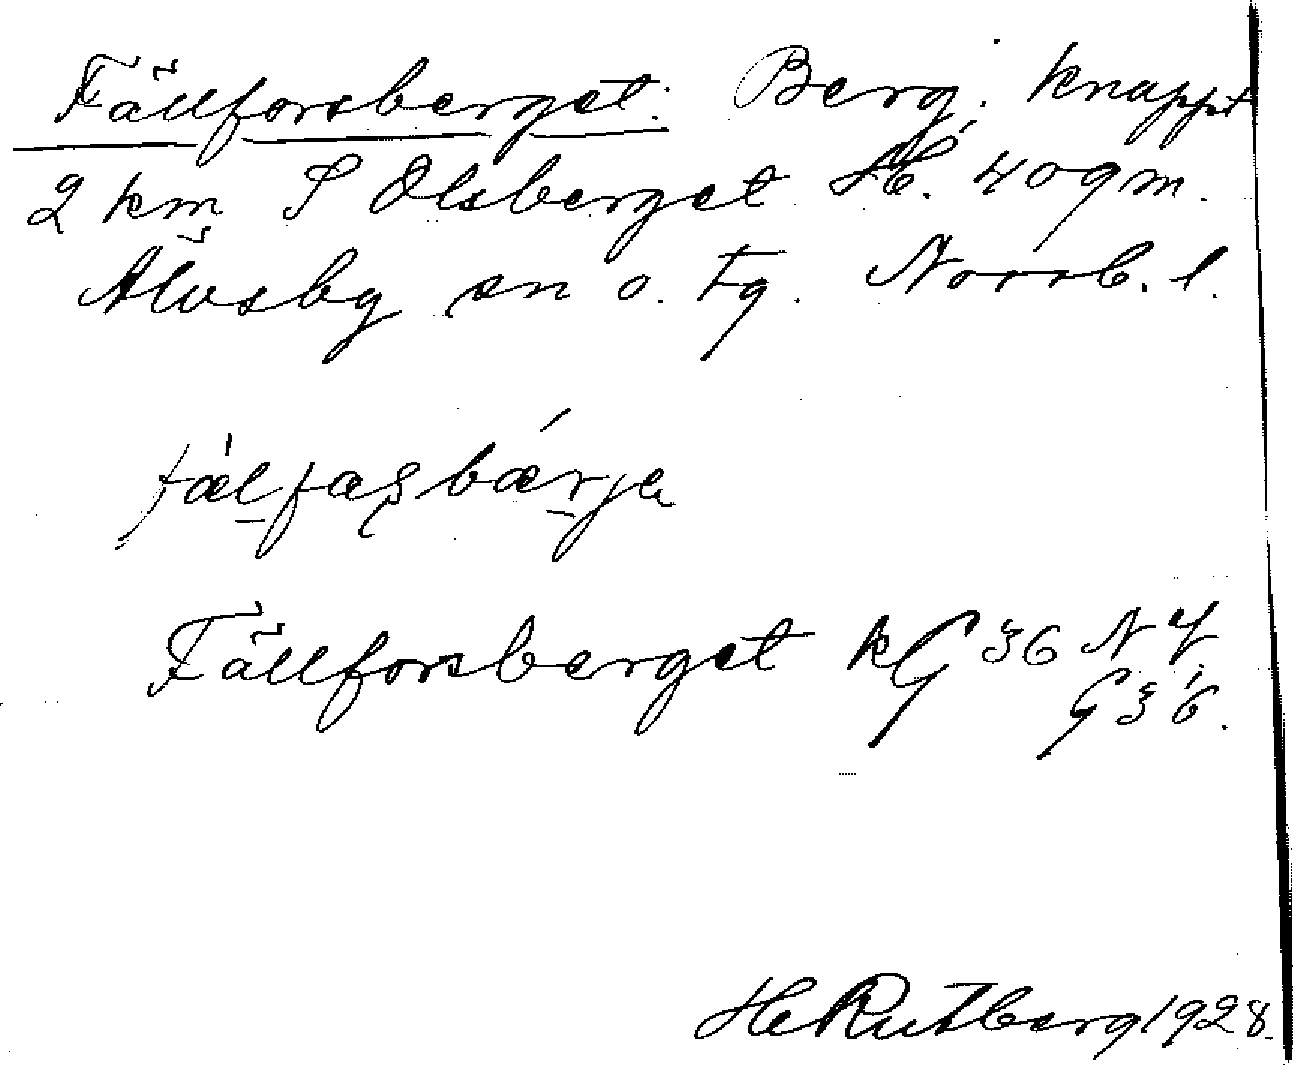 Fällforsberget. Berg, knappt
2 km S Olsberget H. 409 m.
Älvsby sn o. tg. Norrb. l.
fǽl̲faʂbǽr̲ja
Fällforsberget kG 36 NV
G 36.
H Rutberg 1928.